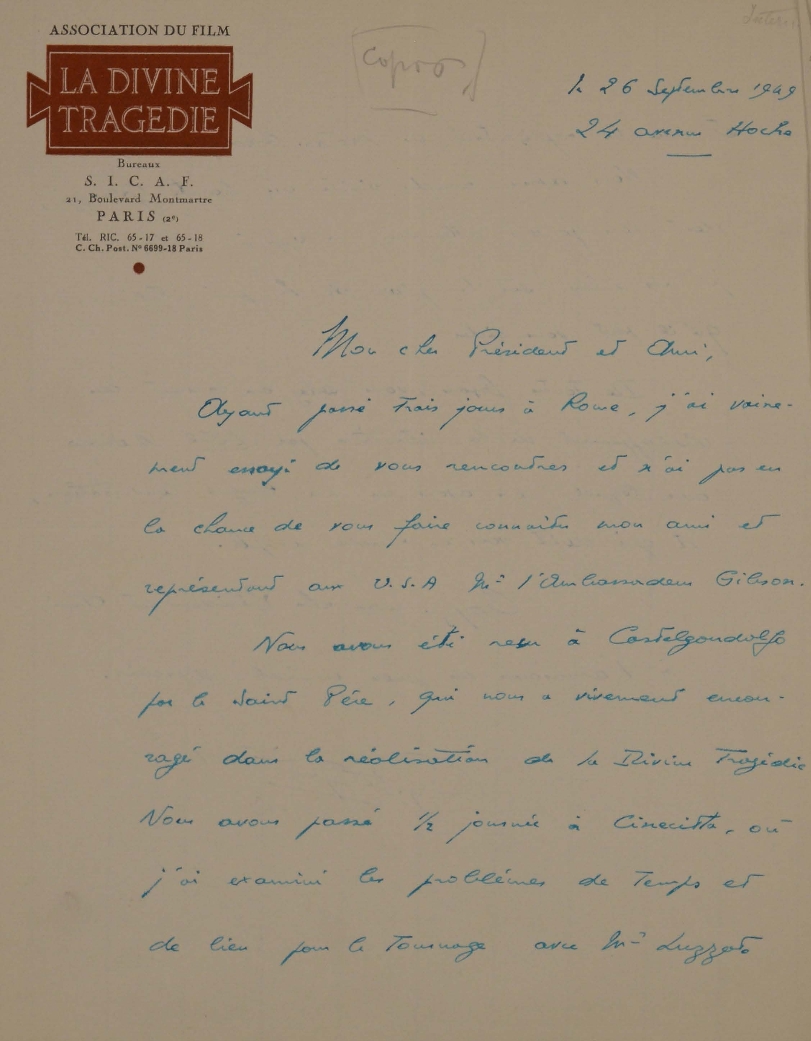 ASSOCIATION DU FILM
LA DIVINE
TRAGEDIE
Bureaux
S. I. C. A. F.
21, Boulevard Montmartre
PARIS (2e)
Tél. RIC. 65-17 et 65-18
C. Ch. Post. N° 6699-18 Paris
le 26 Septembre 1949
24 avenue Hoche
Mon cher Président et Ami,
Ayant passé trois jours à Rome, j'ai vaine-
ment essayé de vous rencontrer et n'ai pas eu
la chance de vous faire connaître mon ami et
représentant aux U.S.A Mr l'Ambassadeur Gibson.
Nous avons été reçu à Castelgondolfo
par le Saint Père, qui nous a vivement encou-
ragé dans la réalisation de la Divine Tragédie
Nous avons passé 1/2 journée à Cinecitta, où
j'ai examiné les problèmes de temps et
de lieu pour le Tournage avec Mr Luzzato